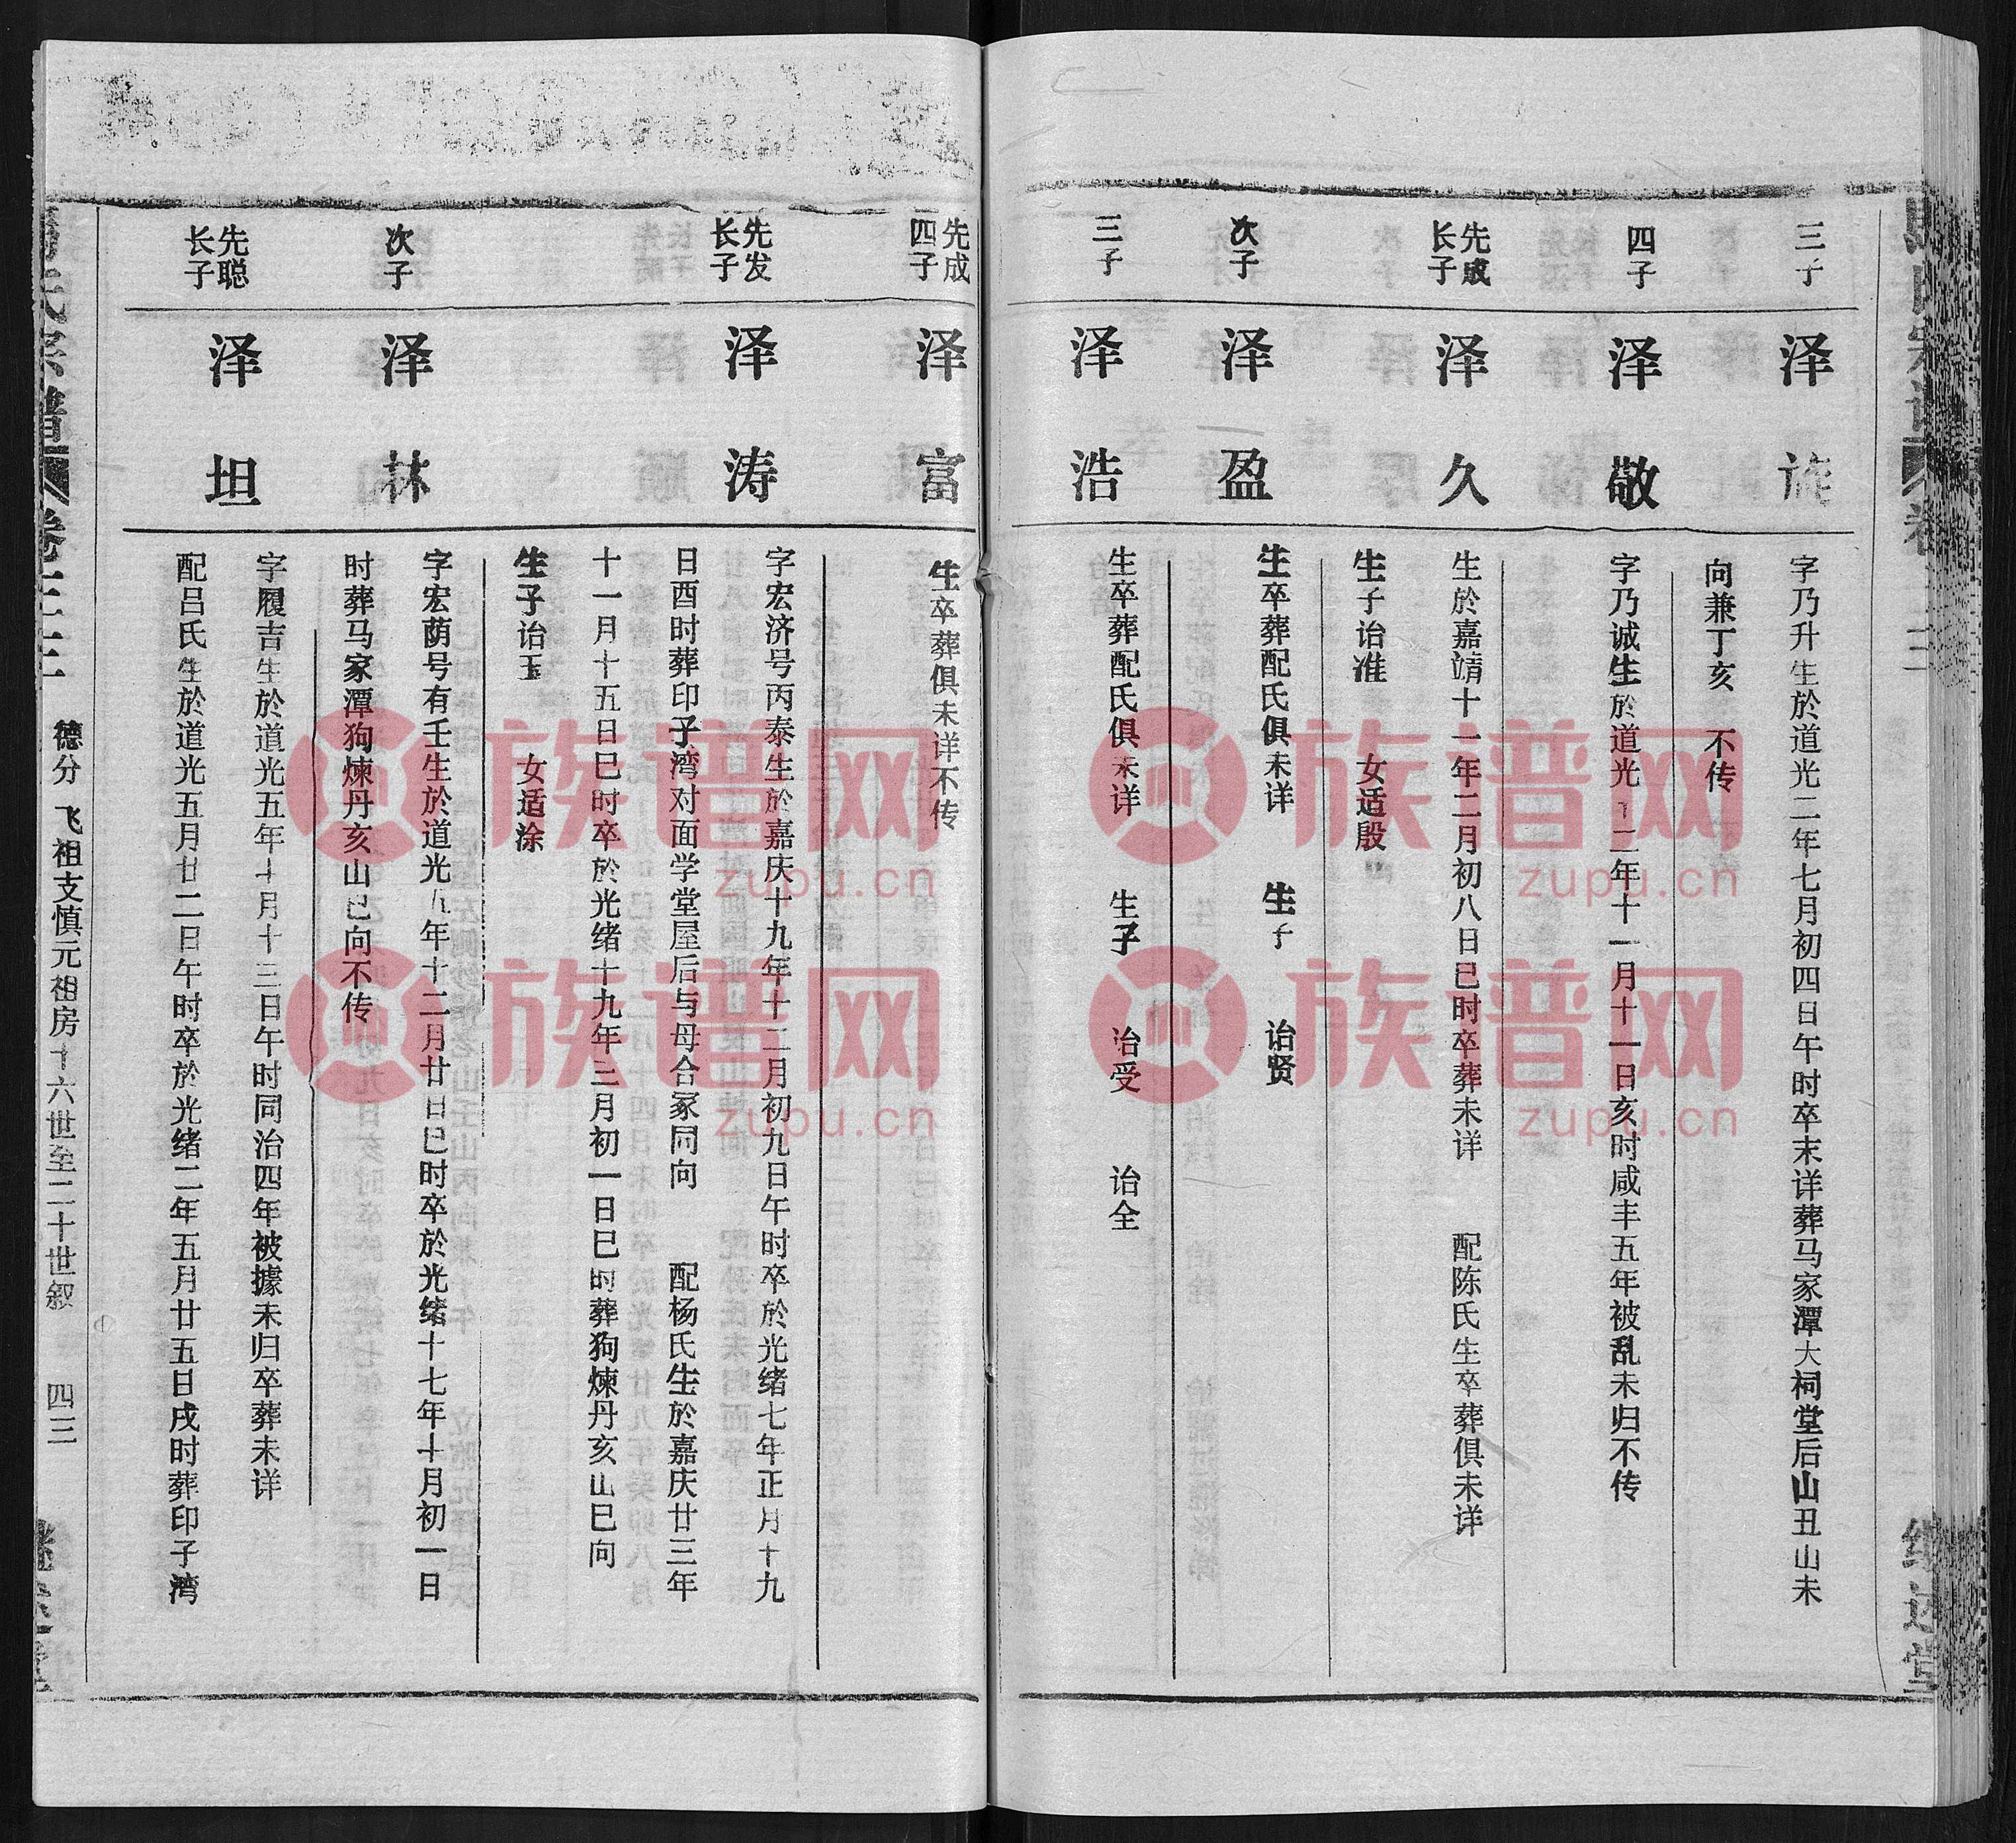 三子
泽旌
字乃升生於道光二年七月初四日午时卒未详葬马家潭大祠堂后山丑山未
向兼丁亥 不传
四子
泽敬
字乃诚生於道光十二年十一月十一日亥时咸丰五年被乱未归不传
先成
长子
泽久
生於嘉靖十一年二月初八日巳时卒葬未详 配陈氏生卒葬俱未详
生子诒淮 女适殷
次子
泽盈
生卒葬配氏俱未详 生子 诒贤
三子
泽浩
生卒葬配氏俱未详 生子 诒受 诒全
先成
四子
泽富
生卒葬俱未详不传
先发
长子
泽涛
字宏济号丙泰生於嘉庆十九年十二月初九日午时卒於光绪七年正月十九
日酉时葬印子湾对面学堂屋后与母合冢同向 配杨氏生於嘉庆廿三年
十一月十五日巳时卒於光绪十九年三月初一日巳时葬狗煉丹亥山巳向
生子诒玉 女适涂
次子
泽林
字宏荫号有壬生於道光九年十二月廿日巳时卒於光绪十七年十月初一日
时葬马家潭狗煉丹亥山巳向不传
先聪
长子
泽坦
字履吉生於道光五年十月十三日午时同治四年被據未归卒葬未详
配吕氏生於道光五月廿二日午时卒於光绪二年五月廿五日戌时葬印子湾
氏宗谱 卷三三 德分 飞祖支慎元祖房十六世至二十世叙 四三
族谱网
zupu.cn
族谱网
zupu.cn
族谱网
zupu.cn
族谱网
zupu.cn